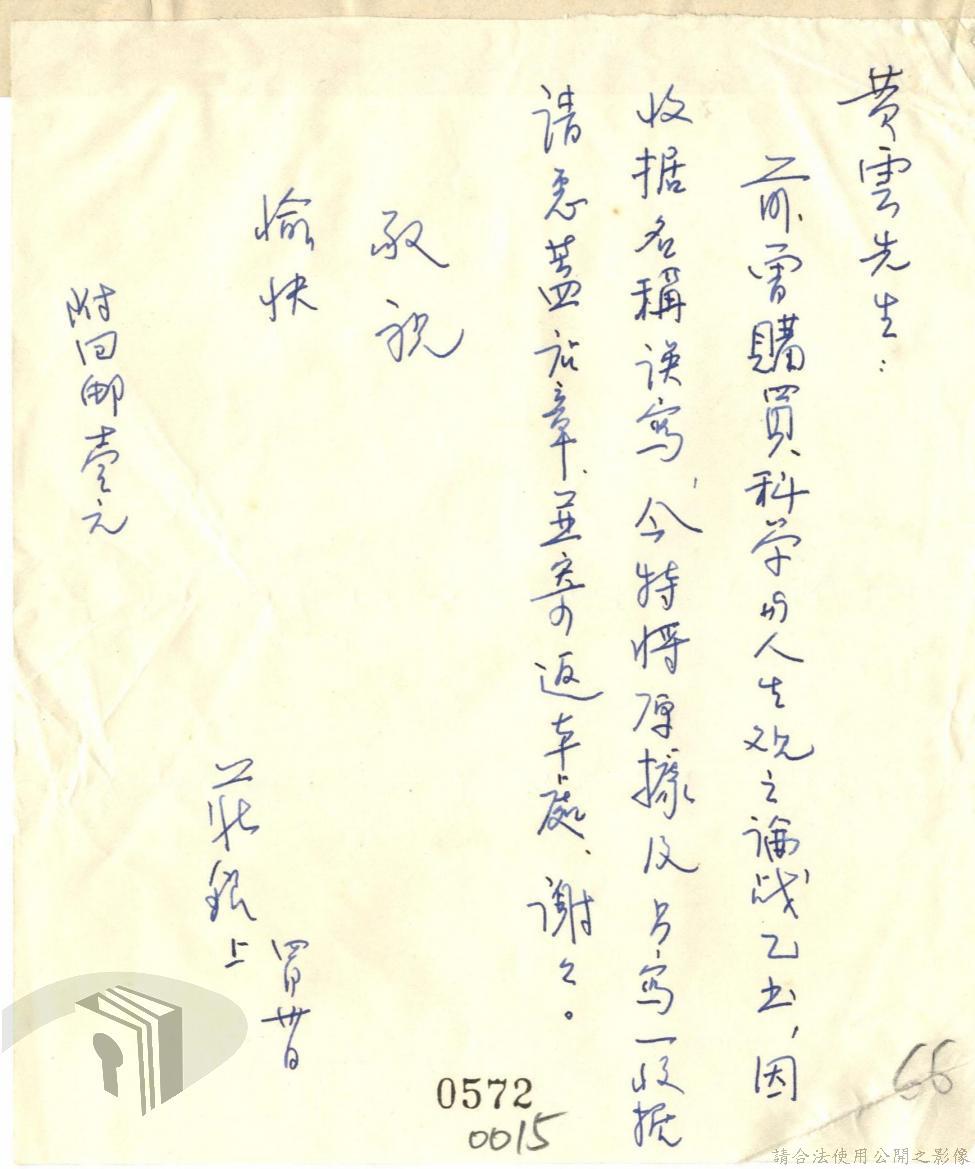 黄雲先生：
前曾購買科学与人生观之論战乙书，因
收据名稱误寫，今特将原據及另寫一收据
請惠蓋於章，並寄返本處，谢々。
敬祝
愉快
莊銀上
四月廿日
附回邮壹元
0572
0015
66
請合法使用公開之影像